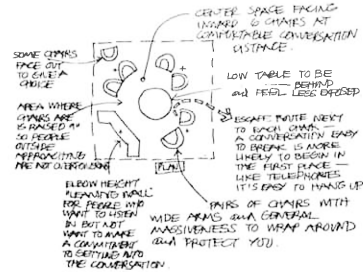 CENTER SPACE FACING
INWARD 6 CHAIRS AT
COMFORTABLE CONVERSATION
DISTANCE.
SOME CHAIRS
FACE OUT
TO GIVE A
CHOICE
LOW TABLE TO BE
BEHIND
and FEEL LESS EXPOSED
AREA WHERE
CHAIRS ARE
IS RAISED
SO PEOPLE
OUTSIDE
APPROACHING
ARE NOT OVERPOWERING
ESCAPE ROUTE NEXT
TO EACH CHAIR —
A CONVERSATION EASY
TO BREAK IS MORE
LIKELY TO BEGIN IN
THE FIRST PLACE —
LIKE TELEPHONES
IT'S EASY TO HANG UP
PLAN
ELBOW HEIGHT
"LEANING WALL"
FOR PEOPLE WHO
WANT TO LISTEN
IN BUT NOT
WANT TO MAKE
A COMMITMENT
TO GETTING INTO
THE CONVERSATION.
PAIRS OF CHAIRS WITH
WIDE ARMS and GENERAL
MASSIVENESS TO WRAP AROUND
and PROTECT YOU.